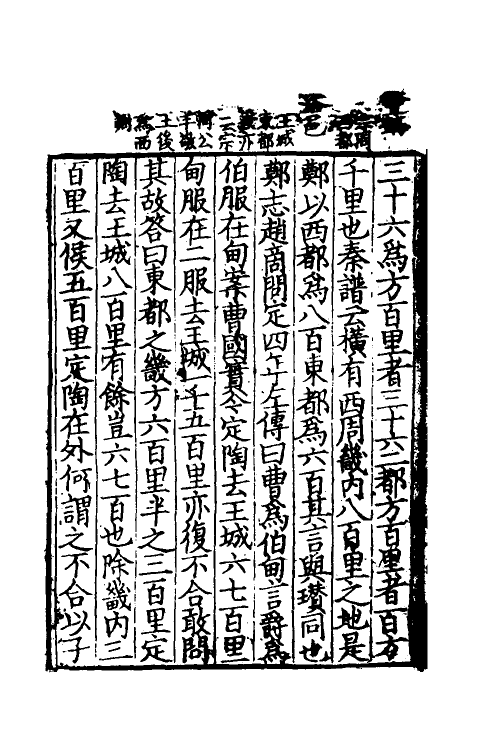 王城
東都
王後
爲西
三十六爲方百里者三十六二都方百里者百方
千里也秦譜云橫有西周畿內八百里之地是
鄭以西都爲八百東都爲六百其言與瓚同也
鄭志趙商問定四年左傳曰曹爲伯甸言爵爲
伯服在甸案曹國實今定陶去王城六七百里
甸服在二服去王城一千五百里亦復不合敢問
其故答曰東都之畿方六百里半之三百里定
陶去王城八百里有餘豈六七百也除畿內三
百里又侯五百里定陶在外何謂之不合以子